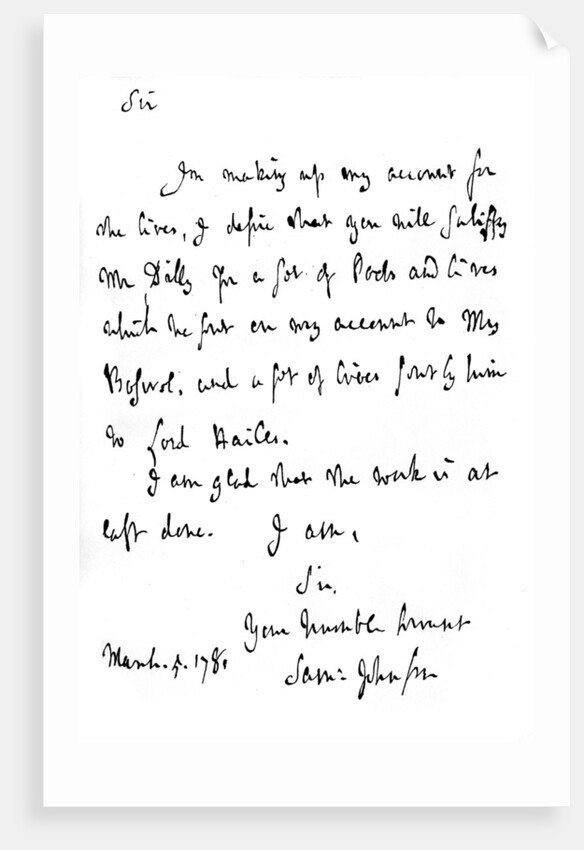 Sir
In making up my account for
the Lives, I desire that you will satisfy
Mr Dilly for a set of Poets and Lives
which he sent on my account to Mrs
Boswel, and a set of Lives sent by him
to Lord Hailes.
I am glad that the work is at
last done. I am,
Sir,
Your humble servant
March. 5. 1781
Sam: Johnson